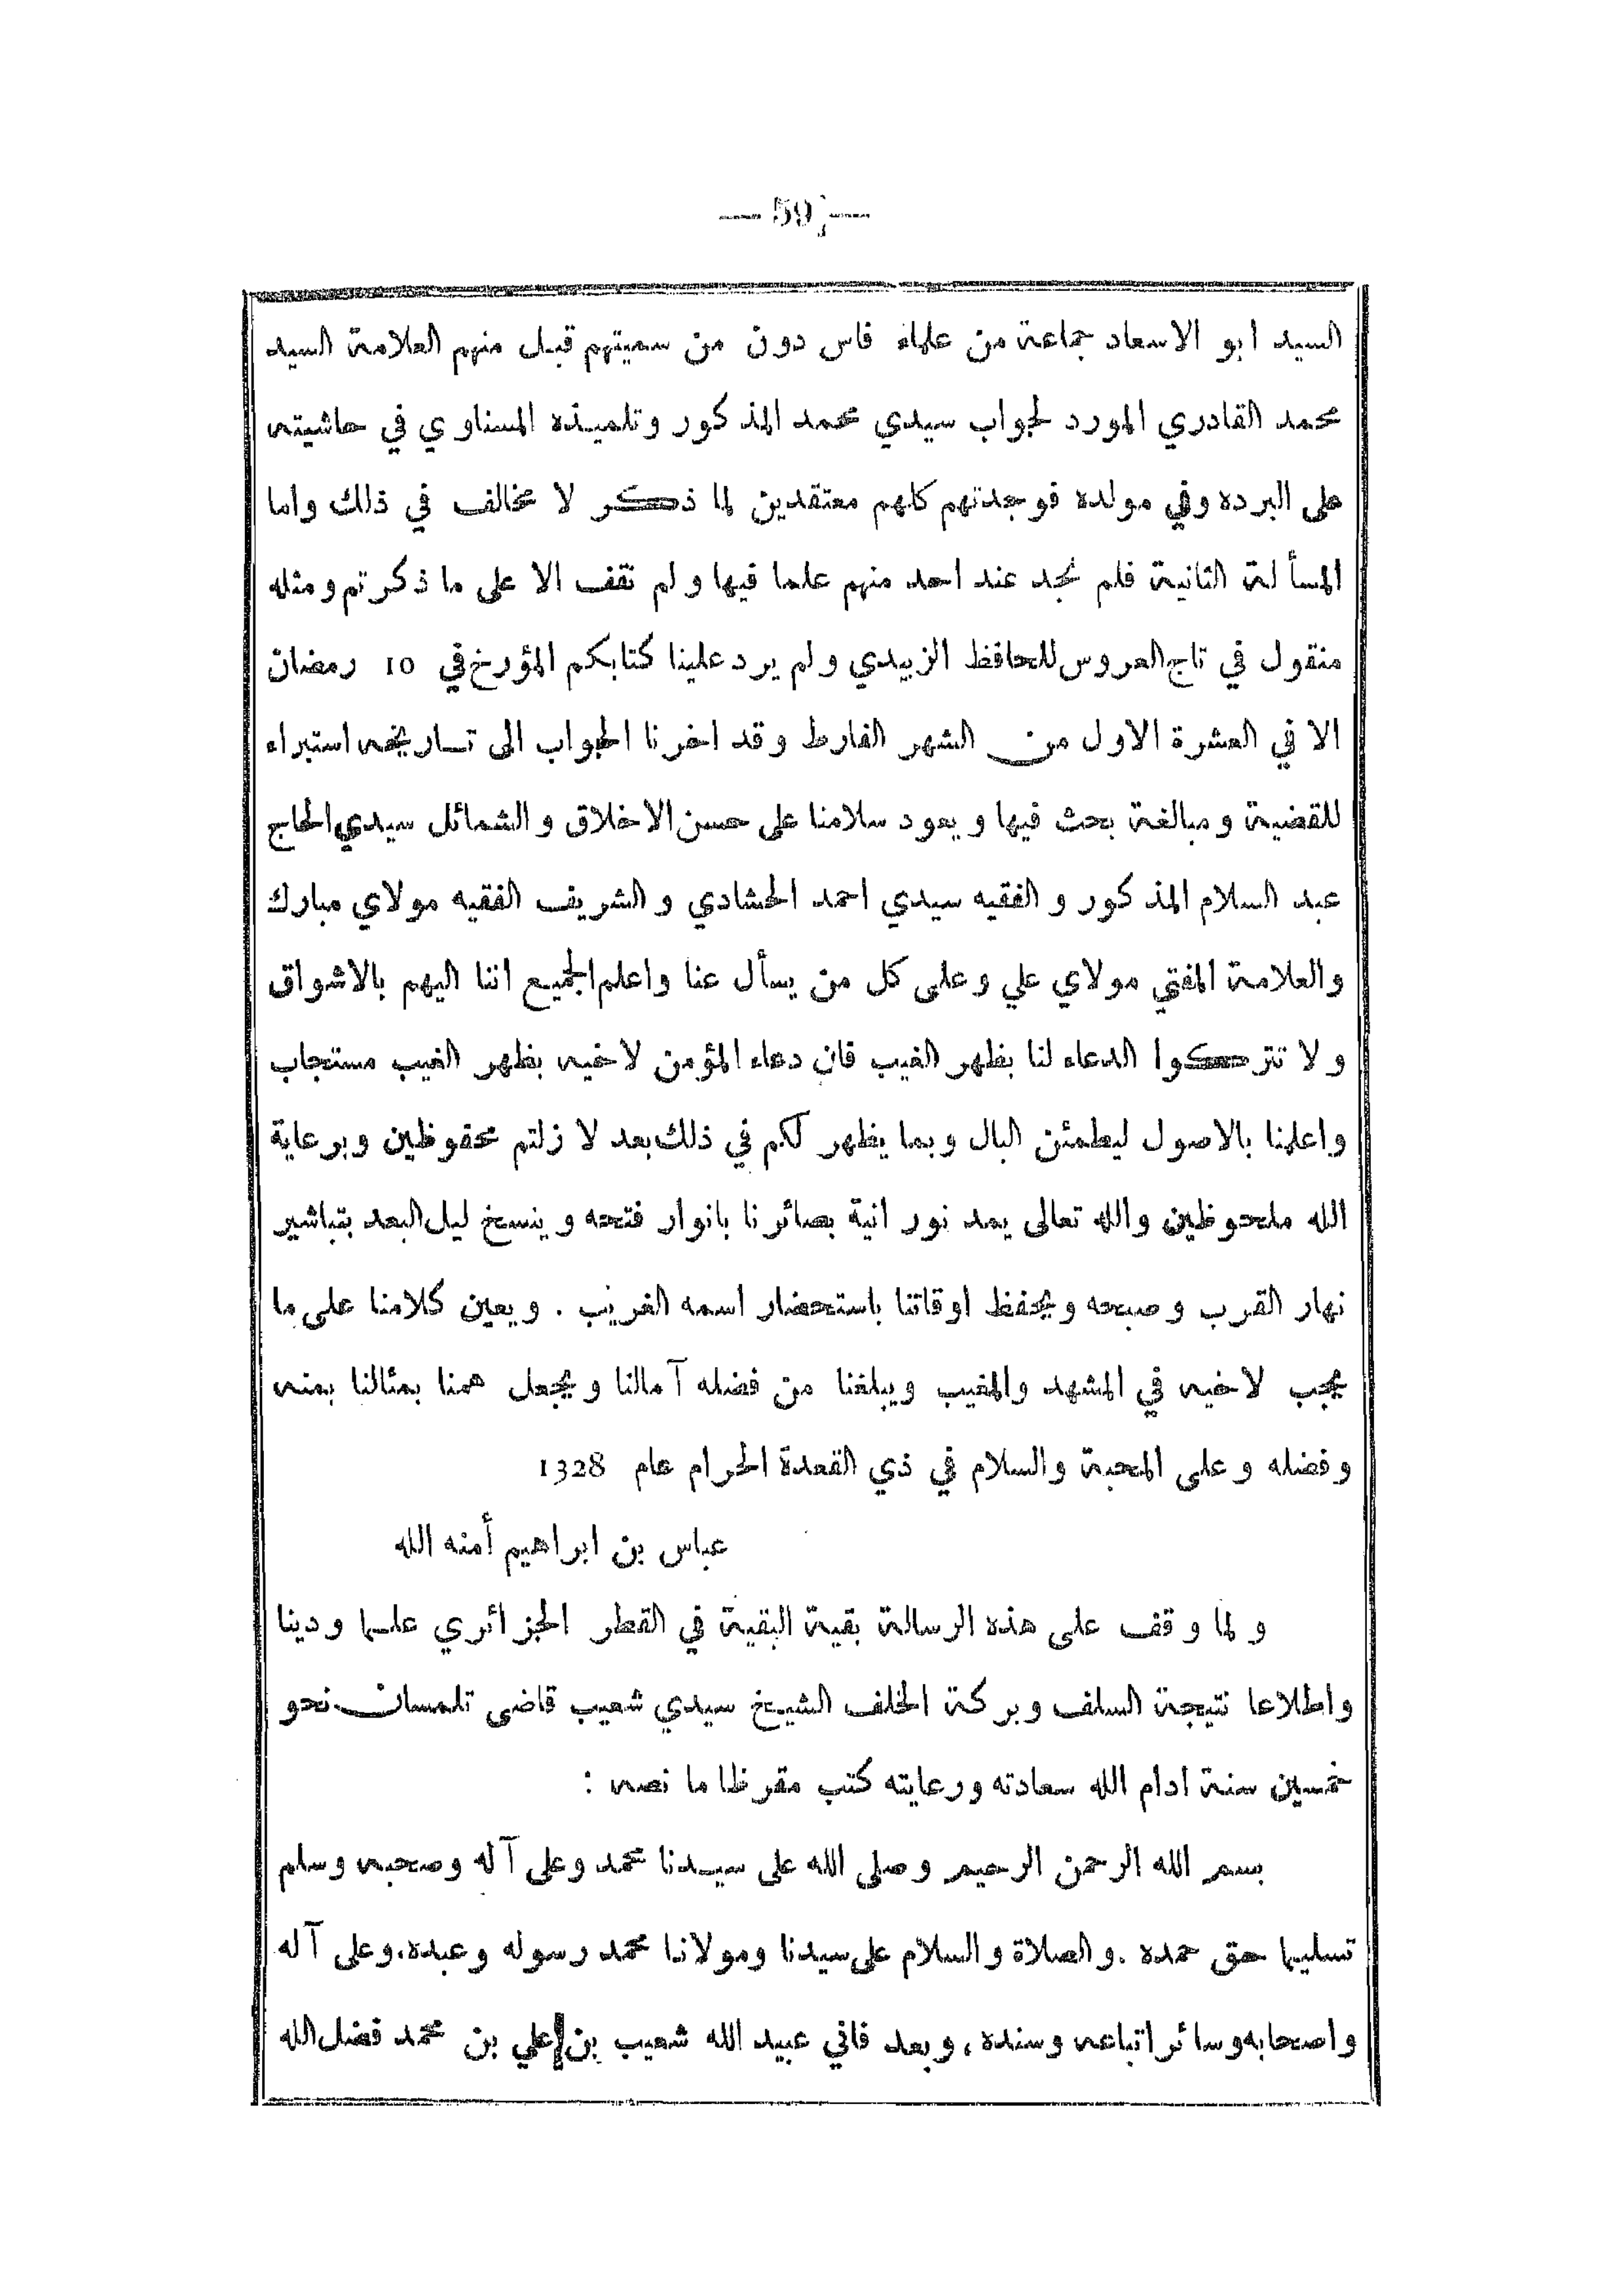 — 59 —
السيد ابو الاسعاد جماعة من علماء فاس دون من سميتهم قبل منهم العلامة السيد
محمد القادري المورد لجواب سيدي محمد المذكور وتلميذه المسناوي في حاشيته
على البرده وفي مولده فوجدتهم كلهم معتقدين لما ذكر لا مخالف في ذلك واما
المسألة الثانية فلم نجد عند احد منهم علما فيها ولم نقف الا على ما ذكرتم ومثله
منقول في تاج العروس للحافظ الزبيدي ولم يرد علينا كتابكم المؤرخ في 10 رمضان
الا في العشرة الاول من الشهر الفارط وقد اخرنا الجواب الى تاريخه استبراء
للقضية ومبالغة بحث فيها ويعود سلامنا على حسن الاخلاق والشمائل سيدي الحاج
عبد السلام المذكور والفقيه سيدي احمد الحشادي والشريف الفقيه مولاي مبارك
والعلامة المفتي مولاي علي وعلى كل من يسأل عنا واعلم الجميع اننا اليهم بالاشواق
ولا تتركوا الدعاء لنا بظهر الغيب فان دعاء المؤمن لاخيه بظهر الغيب مستجاب
واعلمنا بالاصول ليطمئن البال وبما يظهر لكم في ذلك بعد لا زلتم محفوظين وبرعاية
الله ملحوظين والله تعالى يمد نورانية بصائرنا بانوار فتحه وينسخ ليل البعد بتباشير
نهار القرب وصبحه ويحفظ اوقاتنا باستحضار اسمه القريب . ويعين كلامنا على ما
يجب لاخيه في المشهد والمغيب ويبلغنا من فضله آمالنا ويجعل همنا بمثالنا بمنه
وفضله وعلى المحبة والسلام في ذي القعدة الحرام عام 1328
عباس بن ابراهيم أمنه الله
ولما وقف على هذه الرسالة بقية البقية في القطر الجزائري علما ودينا
واطلاعا نتيجة السلف وبركة الخلف الشيخ سيدي شعيب قاضى تلمسان نحو
خمسين سنة ادام الله سعادته ورعايته كتب مقرظا ما نصه :
بسم الله الرحمن الرحيم وصلى الله على سيدنا محمد وعلى آله وصحبه وسلم
تسليما حق حمده . والصلاة والسلام على سيدنا ومولانا محمد رسوله وعبده، وعلى آله
واصحابه وسائر اتباعه وسنده، وبعد فاني عبيد الله شعيب بن علي بن محمد فضل الله